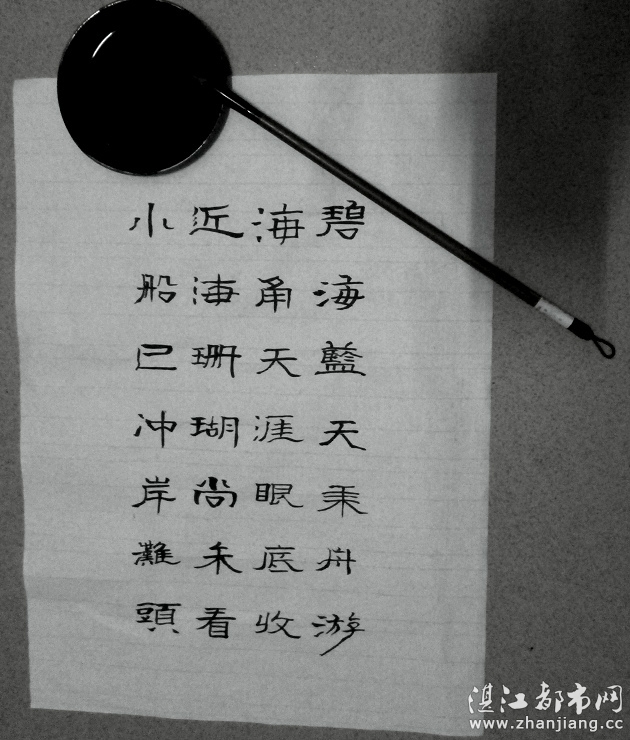 碧海藍天乘舟游
海角天涯眼底收
近海珊瑚尚未看
小船已冲岸灘頭
湛江都市网
www.zhanjiang.cc